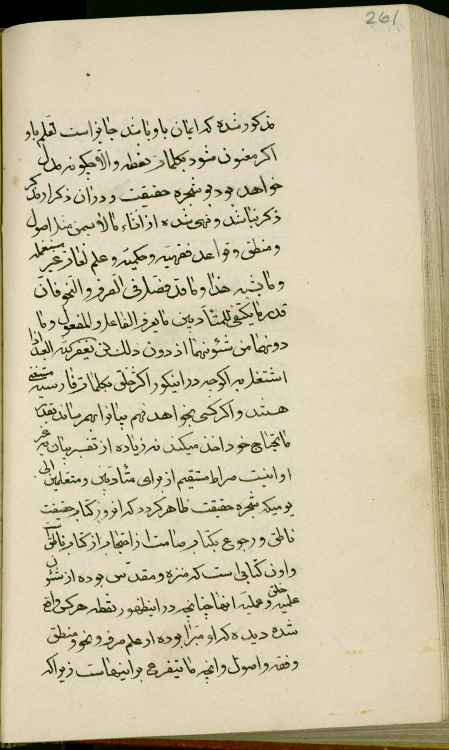 261
مذکور شده که ایمان باو باشد جایز است تعلم باو
اگر معنون شود بکلمات نقطه والا چگونه مدل
خواهد بود بر شجره حقیقت و در آن ذکر ادله
ذکر نباشد و نهی شده از انشاء مالا یسمن مثل اصول
و منطق و قواعد فقهیه و حکمیه و علم لغات غیر مستعمله
و ما یشبه هذا و ما قد فصل فی الصرف و النحو فان
قدر ما یکفی للمتأدبین ما یعرف الفاعل و المفعول و ما
دونهما من شئونهما اذ دون ذلک لن یغفر الله العبد اذا
اشتغل به اگرچه در اینکور اکثر خلق بکلمات فارسیه مستغنی
هستند و اگر کسی بخواهد فهم بیان را بهم رساند بقدر
ما یحتاج خود اخذ میکند نه زیاده از تفسیر بیان غیر
او اینست صراط مستقیم از برای متأدبین و متعلمین الی
یومیکه شجره حقیقت ظاهر گردد که آنروز کتاب حقیقت
ناطق و رجوع بکتاب صامت از احتجاب از کتاب ناطق است
و اون کتابی است که منزه و مقدس بوده از شئون
علمیه و عملیه خلق انها چنانچه در اینظهور نقطه هر کس واقع
شده دیده که او مبرا بوده از علم صرف و نحو و منطق
و فقه و اصول و انچه ما یتفرع بر اینهاست زیرا که